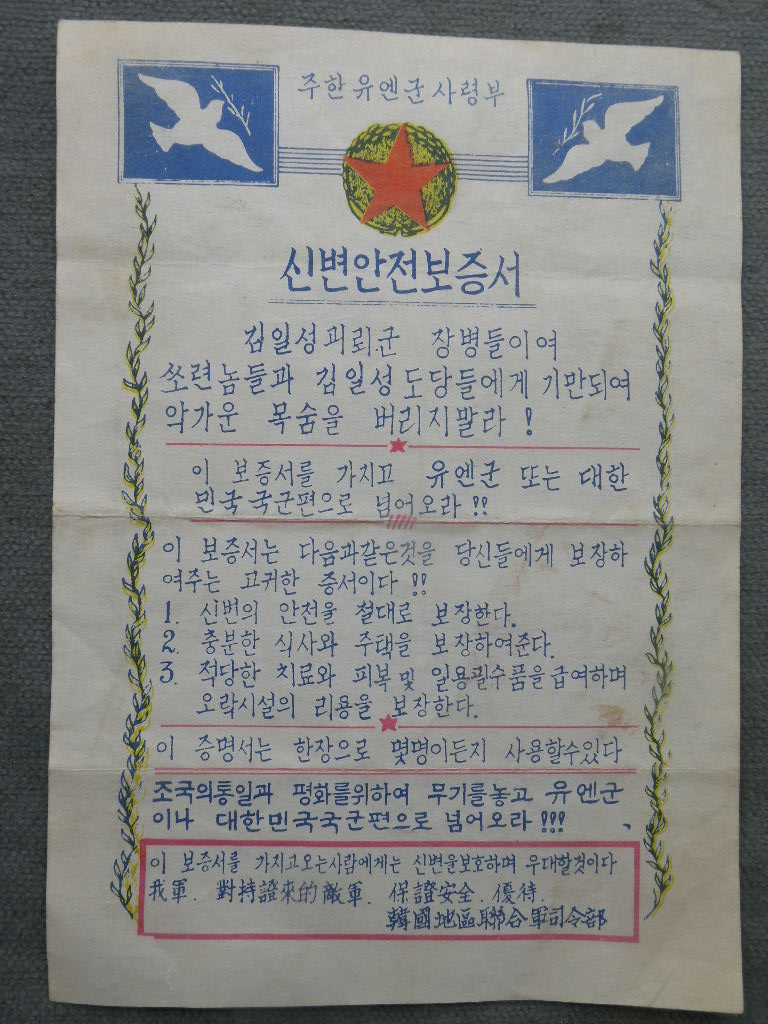 주한유엔군사령부
신변안전보증서
김일성괴뢰군 장병들이여
쏘련놈들과 김일성도당들에게 기만되여
악가운 목숨을 버리지말라!
이 보증서를 가지고 유엔군 또는 대한
민국국군편으로 넘어오라!!
이 보증서는 다음과같은것을 당신들에게 보장하
여주는 고귀한 증서이다!!
1. 신번의 안전을 절대로 보장한다.
2. 충분한 식사와 주택을 보장하여준다.
3. 적당한 치료와 피복및 일용필수품을급여하며
오락시설의 리용을 보장한다.
이 증명서는 한장으로 몇명이든지 사용할수있다
조국의통일과 평화를위하여 무기를놓고 유엔군
이나 대한민국국군편으로 넘어오라!!!
이 보증서를 가지고오는사람에게는 신변을보호하며 우대할것이다
我軍. 對持證來的敵軍. 保證安全. 優待.
韓國地區聯合軍司令部